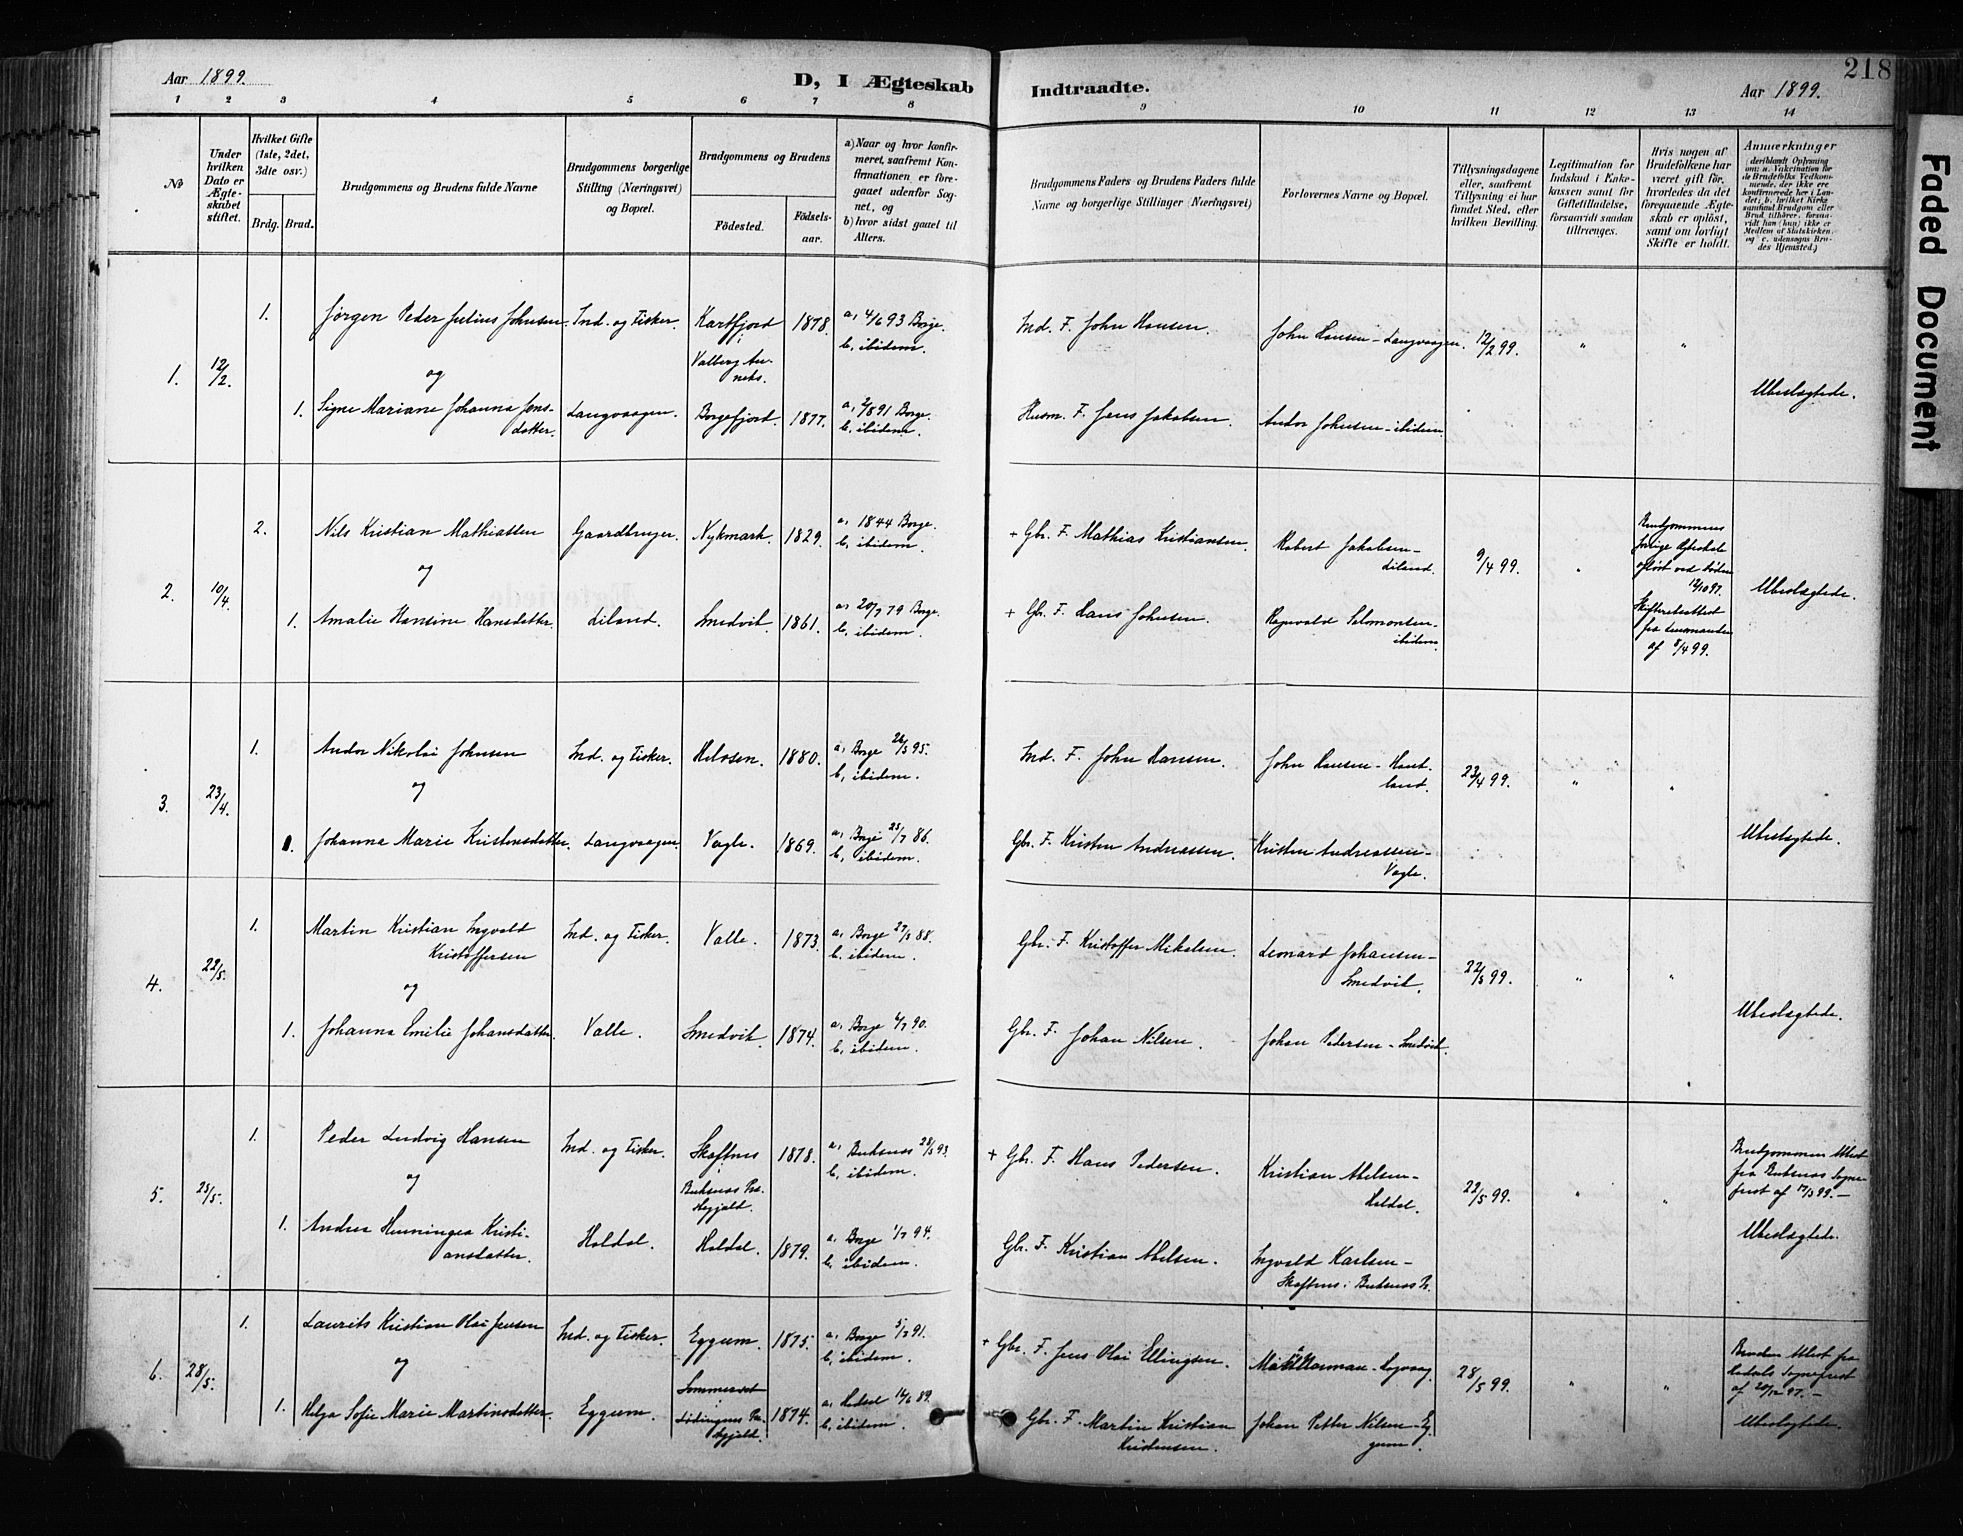 218
Faded Document
Aar 1899.
D, I Ægteskab Indtraadte.
Aar 1899.
1 2 3 4 5 6 7 8 9 10 11 12 13 14
No
Under hvilken Dato er Ægteskabet stiftet.
Hvilket Gifte (1ste, 2det, 3die osv.)
Brdg. Brud.
Brudgommens og Brudens fulde Navne
Brudgommens borgerlige Stilling (Næringsvei) og Bopæl.
Brudgommens og Brudens
Fødested.
Fødselsaar.
a) Naar og hvor konfirmeret, saafremt Konfirmationen er foregaaet udenfor Sognet, og
b) hvor sidst gaaet til Alters.
Brudgommens Faders og Brudens Faders fulde Navne og borgerlige Stillinger (Næringsvei)
Forlovernes Navne og Bopæl.
Tillysningsdagene eller, saafremt Tillysning ei har fundet Sted, efter hvilken Bevilling.
Legitimation for Indskud i Enkekassen samt for Giftetilladelse, forsaavidt saadan tiltrænges.
Hvis nogen af Brudefolkene har været gift før, hvorledes da det foregaaende Ægteskab er opløst, samt om lovligt Skifte er holdt.
Anmærkninger
1. 12/2.
1. Jørgen Peder Julius Johnsen. Ind. og Fisker. Kartfjord i Valberg Anneks. 1878. a, 4/6 93 Borge. b, ibidem. Ind. F. John Hansen. John Hansen - Langvaagen. 12/2 99. " "
og
1. Signe Mariane Johanna Jensdatter. Langvaagen. Borgefjord. 1877. a, 2/8 91 Borge. b, ibidem. Husm. F. Jens Jakobsen. Andor Johnsen - ibidem. Ubeslægtede.
2. 10/4.
2. Nils Kristian Mathiassen Gaardbruger. Nykmark. 1829. a, 1844 Borge. b, ibidem. + Gbr. F. Mathias Kristiansen. Robert Jakobsen - Liland. 9/4 99. " Brudgommens forrige Ægteskab opløst ved Døden 12/10 97. Skifteretsattest fra Lensmanden af 8/4 99.
og
1. Amalie Hansine Hansdatter. Liland. Smedvik. 1861. a, 20/7 79 Borge. b, ibidem. + Gbr. F. Hans Johnsen. Ragnvald Salomonsen - ibidem. Ubeslægtede.
3. 23/4.
1. Andor Nikolai Johnsen Ind. og Fisker. Helosen. 1880. a, Borge 26/5 95. b, ibidem. Ind. F. John Hansen. John Hansen - Hauk-land. 23/4 99. " "
og
1. Johanna Marie Kristensdatter. Langvaagen. Vagle. 1869. a, Borge 25/7 86. b, ibidem. Gbr. F. Kristen Andreassen. Kristen Andreassen - Vagle. Ubeslægtede.
4. 22/5.
1. Martin Kristian Ingvald Kristoffersen Ind. og Fisker. Valle. 1873. a, Borge 27/5 88. b, ibidem. Gbr. F. Kristoffer Mikelsen. Leonard Johansen - Smedvik. 22/5 99. " "
og
1. Johanna Emilie Johansdatter. Valle. Smedvik. 1874. a, Borge 6/7 90. b, ibidem. Gbr. F. Johan Nilsen. Johan Pedersen - Smedvik. Ubeslægtede.
5. 25/5.
1. Peder Ludvig Hansen Ind. og Fisker. Skaftnes Buksnes Præstegjeld. 1878. a, Buksnes 28/5 93. b, ibidem. + Gbr. F. Hans Pedersen. Kristian Abelsen - Holdal. 22/5 99. " " Brudgommens Attest fra Buksnes Sogneprest af 17/5 99. -
og
1. Andrea Henningea Kristiansdatter. Holdal. Holdal. 1879. a, Borge 1/7 94. b, ibidem. Gbr. F. Kristian Abelsen. Ingvald Karlsen - Skaftnes i Buksnes P. Ubeslægtede.
6. 28/5.
1. Laurits Kristian Olai Jensen Ind. og Fisker. Eggum. 1875. a, Borge 5/7 91. b, ibidem. + Gbr. F. Jens Olai Ellingsen. 28/5 99. " " Brudens Attest fra Sogneprest af 20/12 97. -
og
1. Helga Sofie Marie Martinsdatter. Eggum. Sommerset Lødingens Præstegjeld. 1874. a, 14/6 89. b, ibidem. Gbr. F. Martin Kristian Kristensen. Johan Petter Nilsen - Eggum. Ubeslægtede.